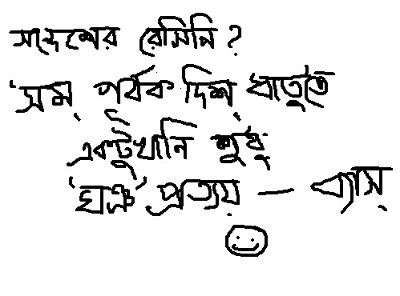 সন্দেশের রেসিপি?
'সম্ পূর্বক দিশ্ ধাতুতে
একটুখানি শুধু
'ঘঞ' প্রত্যয় — ব্যাস্